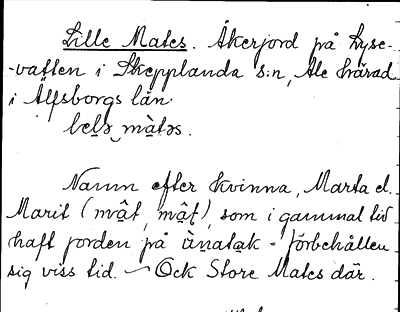 Lille Mates. Åkerjord på Lyse-
-vatten i Skepplanda s:n, Ale härad
i Älfsborgs län.
lelə màtəs.
Namn efter kvinna, Marta el.
Marit (mat, mat), som i gammal tid
haft jorden på ànatak - förbehållen
sig viss tid. — Ock Store Mates där.